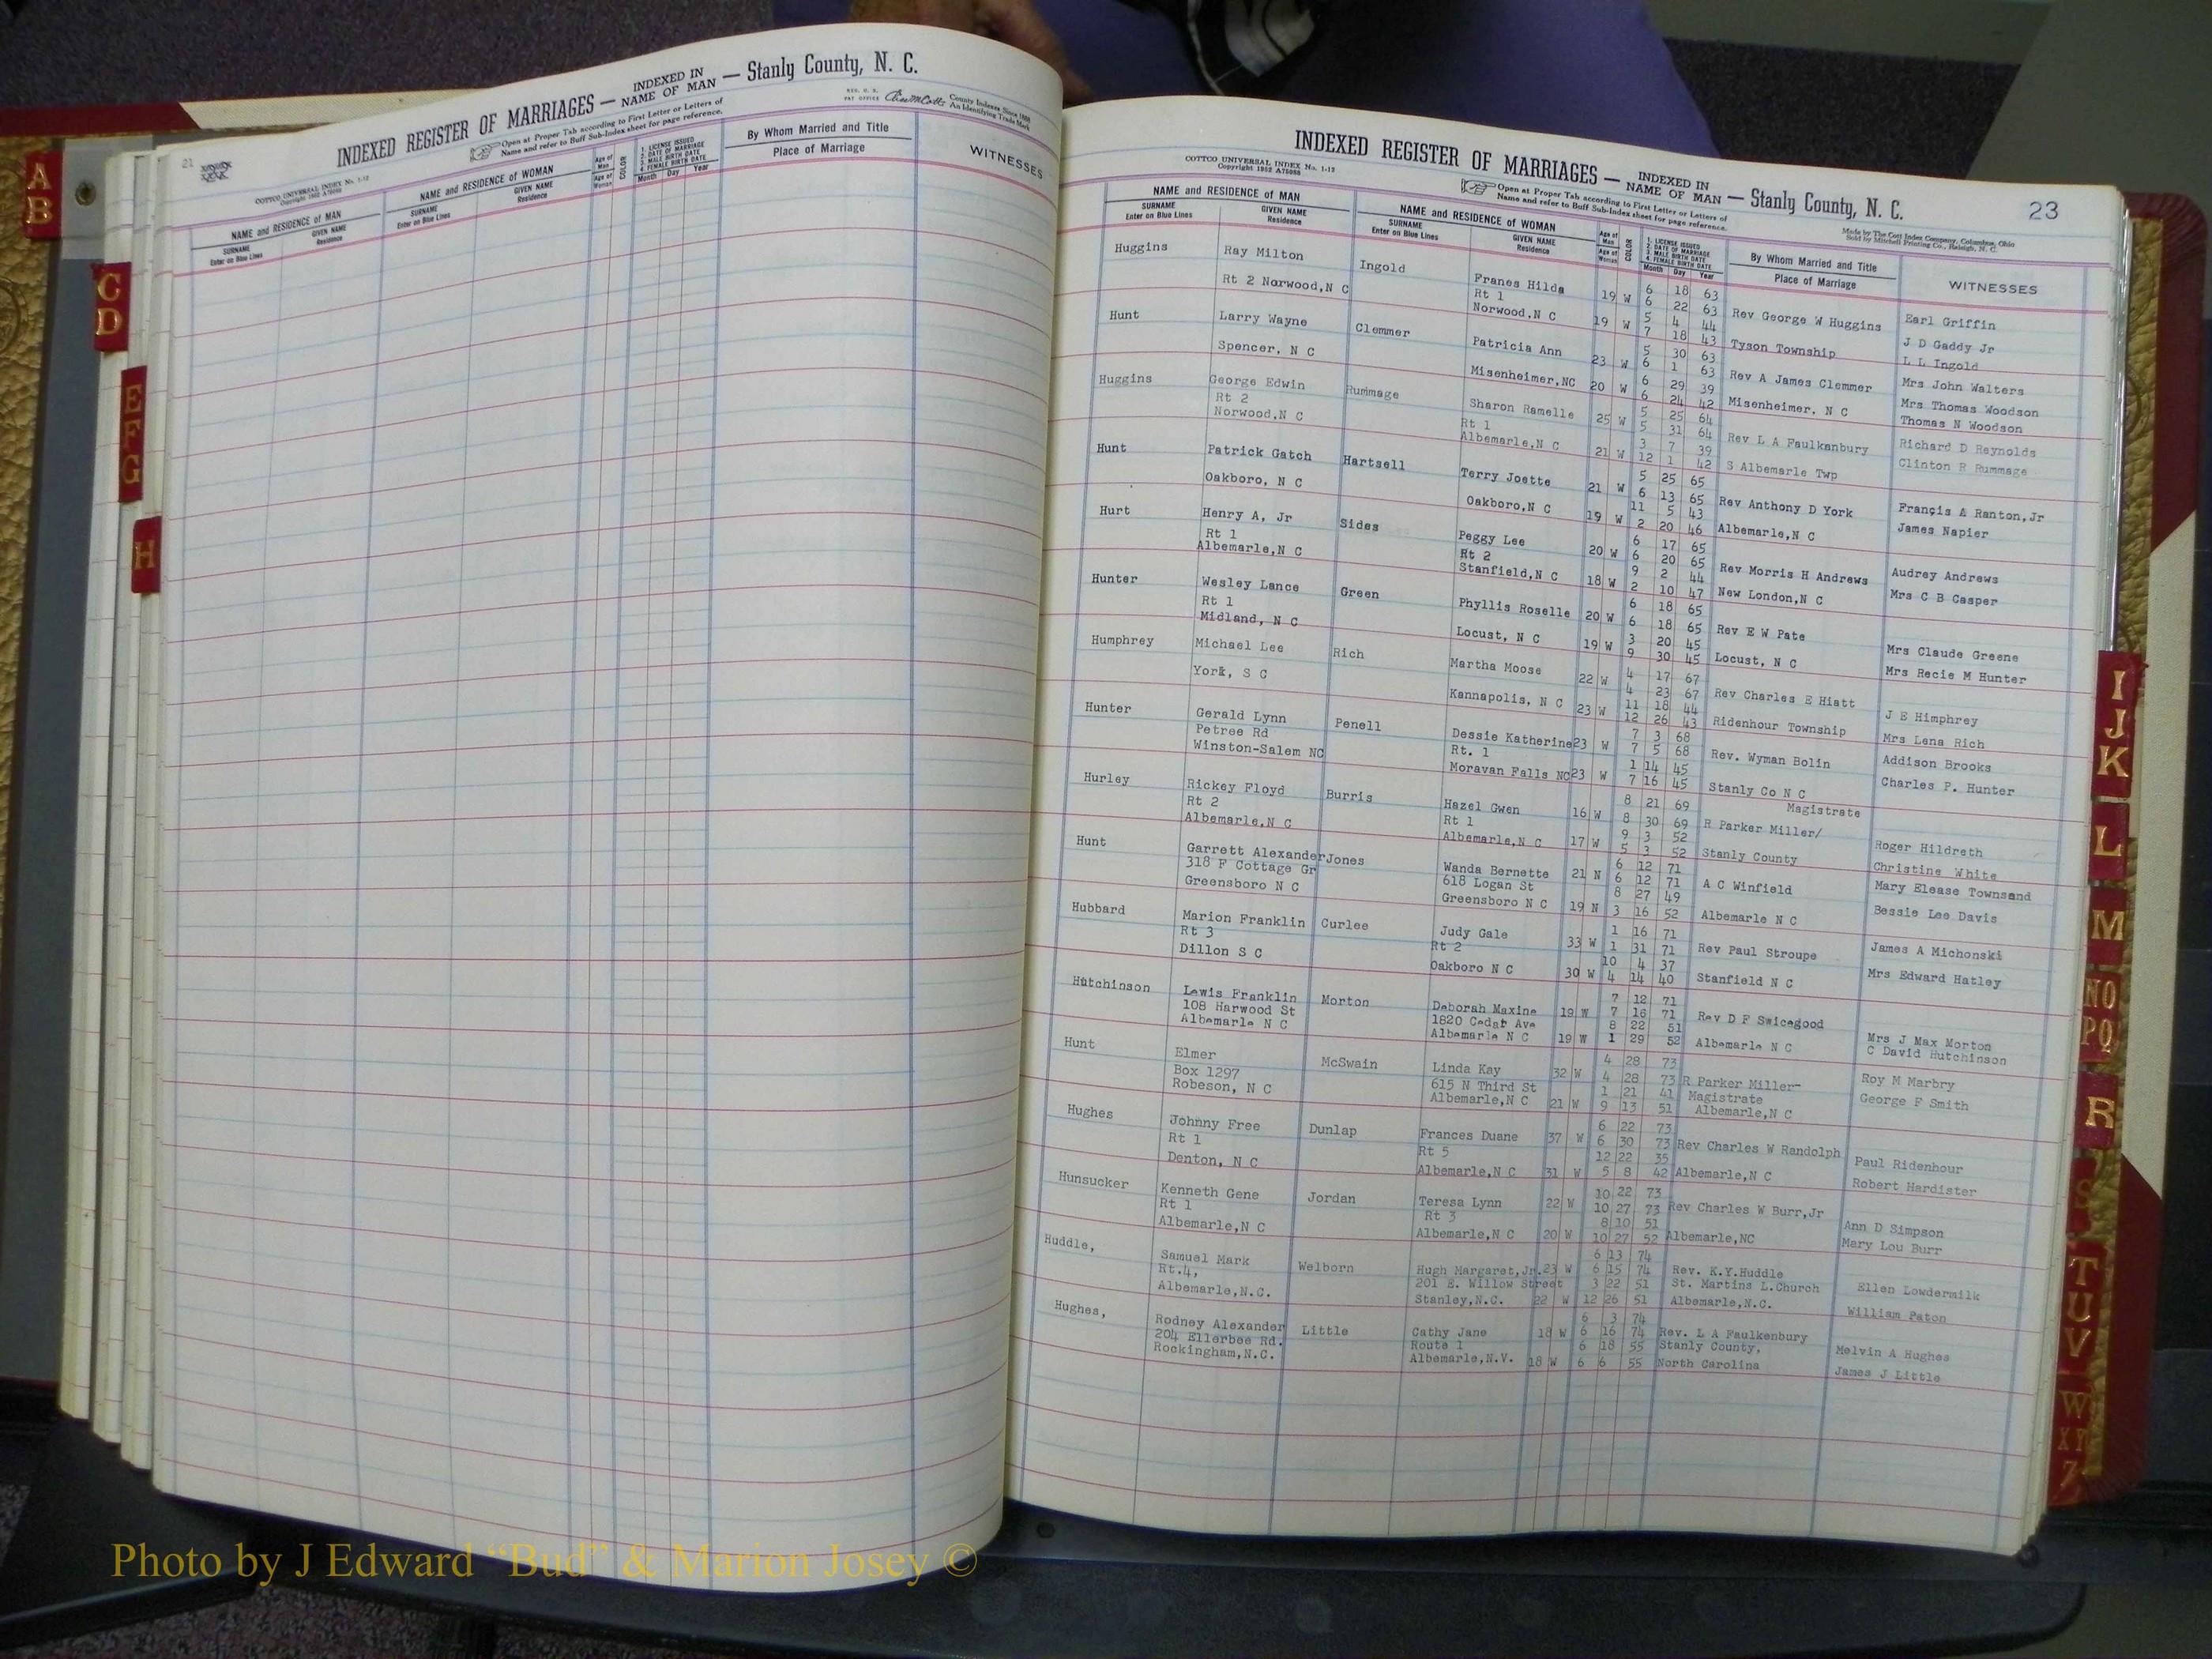 A
B
C
D
E
F
G
H
21
INDEXED REGISTER OF MARRIAGES — INDEXED IN NAME OF MAN — Stanly County, N. C.
COTTCO UNIVERSAL INDEX No. 1-12
Open at Proper Tab according to First Letter or Letters of
Name and refer to Buff Sub-Index sheet for page reference.
NAME and RESIDENCE of MAN
SURNAME GIVEN NAME
Enter on Blue Lines Residence
NAME and RESIDENCE of WOMAN
SURNAME GIVEN NAME
Enter on Blue Lines Residence
Age of Man
Age of Woman
COLOR
1. LICENSE ISSUED
2. DATE OF MARRIAGE
3. MALE BIRTH DATE
4. FEMALE BIRTH DATE
Month Day Year
By Whom Married and Title
Place of Marriage
WITNESSES
INDEXED REGISTER OF MARRIAGES — INDEXED IN NAME OF MAN — Stanly County, N. C. 23
COTTCO UNIVERSAL INDEX No. 1-12
Copyright 1952 A75088
Open at Proper Tab according to First Letter or Letters of
Name and refer to Buff Sub-Index sheet for page reference.
Made by The Cott Index Company, Columbus, Ohio
Sold by Mitchell Printing Co., Raleigh, N. C.
NAME and RESIDENCE of MAN
SURNAME GIVEN NAME
Enter on Blue Lines Residence
NAME and RESIDENCE of WOMAN
SURNAME GIVEN NAME
Enter on Blue Lines Residence
Age of Man
Age of Woman
COLOR
1. LICENSE ISSUED
2. DATE OF MARRIAGE
3. MALE BIRTH DATE
4. FEMALE BIRTH DATE
Month Day Year
By Whom Married and Title
Place of Marriage
WITNESSES
Huggins Ray Milton Ingold Franes Hilda 19 W 6 18 63 Rev George W Huggins Earl Griffin
Rt 2 Norwood,N C Rt 1 6 22 63 J D Gaddy Jr
Norwood,N C 19 W 5 4 44 Tyson Township L L Ingold
7 18 43
Hunt Larry Wayne Clemmer Patricia Ann 23 W 5 30 63 Rev A James Clemmer Mrs John Walters
6 1 63 Mrs Thomas Woodson
Spencer, N C Misenheimer,NC 20 W 6 29 39 Misenheimer, N C Thomas N Woodson
6 24 42
Huggins George Edwin Rummage Sharon Ramelle 25 W 5 25 64 Rev L A Faulkanbury Richard D Reynolds
Rt 2 Rt 1 5 31 64 Clinton R Rummage
Norwood,N C Albemarle,N C 21 W 3 7 39 S Albemarle Twp
12 1 42
Hunt Patrick Gatch Hartsell Terry Joette 21 W 5 25 65 Rev Anthony D York Francis A Ranton,Jr
6 13 65 James Napier
Oakboro, N C Oakboro,N C 19 W 11 5 43 Albemarle,N C
2 20 46
Hurt Henry A, Jr Sides Peggy Lee 20 W 6 17 65 Rev Morris H Andrews Audrey Andrews
Rt 1 Rt 2 6 20 65 Mrs C B Casper
Albemarle,N C Stanfield,N C 18 W 9 2 44 New London,N C
2 10 47
Hunter Wesley Lance Green Phyllis Roselle 20 W 6 18 65 Rev E W Pate Mrs Claude Greene
Rt 1 6 18 65 Mrs Recie M Hunter
Midland, N C Locust, N C 19 W 3 20 45 Locust, N C
9 30 45
Humphrey Michael Lee Rich Martha Moose 22 W 4 17 67 Rev Charles E Hiatt J E Himphrey
4 23 67 Mrs Lena Rich
York, S C Kannapolis, N C 23 W 11 18 44 Ridenhour Township
12 26 43
Hunter Gerald Lynn Penell Dessie Katherine 23 W 7 3 68 Rev. Wyman Bolin Addison Brooks
Petree Rd Rt. 1 7 5 68 Charles P. Hunter
Winston-Salem NC Moravan Falls NC 23 W 1 14 45 Stanly Co N C
7 16 45
Hurley Rickey Floyd Burris Hazel Gwen 16 W 8 21 69 Magistrate
Rt 2 Rt 1 8 30 69 R Parker Miller/ Roger Hildreth
Albemarle,N C Albemarle,N C 17 W 9 3 52 Stanly County Christine White
5 3 52
Hunt Garrett Alexander Jones Wanda Bernette 21 N 6 12 71 A C Winfield Mary Elease Townsend
318 F Cottage Gr 618 Logan St 6 12 71 Bessie Lee Davis
Greensboro N C Greensboro N C 19 N 8 27 49 Albemarle N C
3 16 52
Hubbard Marion Franklin Curlee Judy Gale 33 W 1 16 71 Rev Paul Stroupe James A Michonski
Rt 3 Rt 2 1 31 71 Mrs Edward Hatley
Dillon S C Oakboro N C 30 W 10 4 37 Stanfield N C
4 14 40
Hutchinson Lewis Franklin Morton Deborah Maxine 19 W 7 12 71 Rev D F Swicegood Mrs J Max Morton
108 Harwood St 1820 Cedar Ave 7 16 71 C David Hutchinson
Albemarle N C Albemarle N C 19 W 8 22 51 Albemarle N C
1 29 52
Hunt Elmer McSwain Linda Kay 32 W 4 28 73 R Parker Miller- Roy M Marbry
Box 1297 615 N Third St 4 28 73 Magistrate George F Smith
Robeson, N C Albemarle,N C 21 W 1 21 41 Albemarle,N C
9 13 51
Hughes Johnny Free Dunlap Frances Duane 37 W 6 22 73 Rev Charles W Randolph Paul Ridenhour
Rt 1 Rt 5 6 30 73 Robert Hardister
Denton, N C Albemarle,N C 31 W 12 22 35 Albemarle,N C
5 8 42
Hunsucker Kenneth Gene Jordan Teresa Lynn 22 W 10 22 73 Rev Charles W Burr,Jr Ann D Simpson
Rt 1 Rt 3 10 27 73 Mary Lou Burr
Albemarle,N C Albemarle,N C 20 W 8 10 51 Albemarle,NC
10 27 52
Huddle, Samuel Mark Welborn Hugh Margaret,Jr. 23 W 6 13 74 Rev. K.Y.Huddle Ellen Lowdermilk
Rt.4, 201 E. Willow Street 6 15 74 St. Martins L.Church William Paton
Albemarle,N.C. Stanley,N.C. 22 W 3 22 51 Albemarle,N.C.
12 26 51
Hughes, Rodney Alexander Little Cathy Jane 18 W 6 3 74 Rev. L A Faulkenbury Melvin A Hughes
204 Ellerbee Rd. Route 1 6 16 74 Stanly County, James J Little
Rockingham,N.C. Albemarle,N.V. 18 W 6 18 55 North Carolina
6 6 55
I
J
K
L
M
NO
PQ
R
S
T
U
V
W
X Y
Z
Photo by J Edward “Bud” & Marion Josey ©